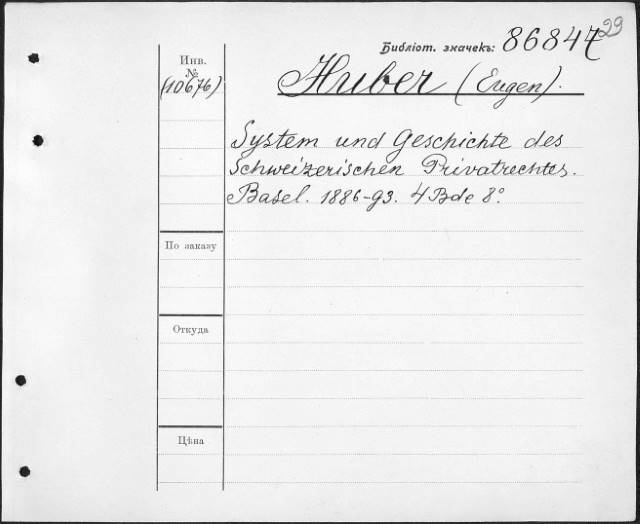 29
Библіот. значекъ: 86847
Инв.
№
(10676)
Huber (Eugen).
System und Geschichte des
Schweizerischen Privatrechtes.
Basel. 1886-93. 4 Bde 8°.
По заказу
Откуда
Цѣна